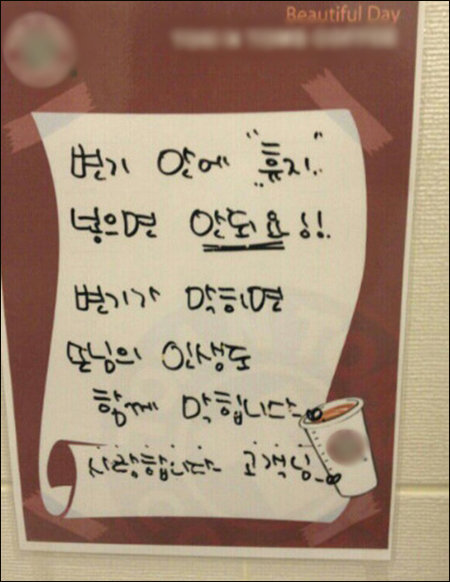 Beautiful Day
변기 안에 "휴지"
넣으면 안되요!!
변기가 막히면
손님의 인생도
함께 막힙니다
사랑합니다 고객님